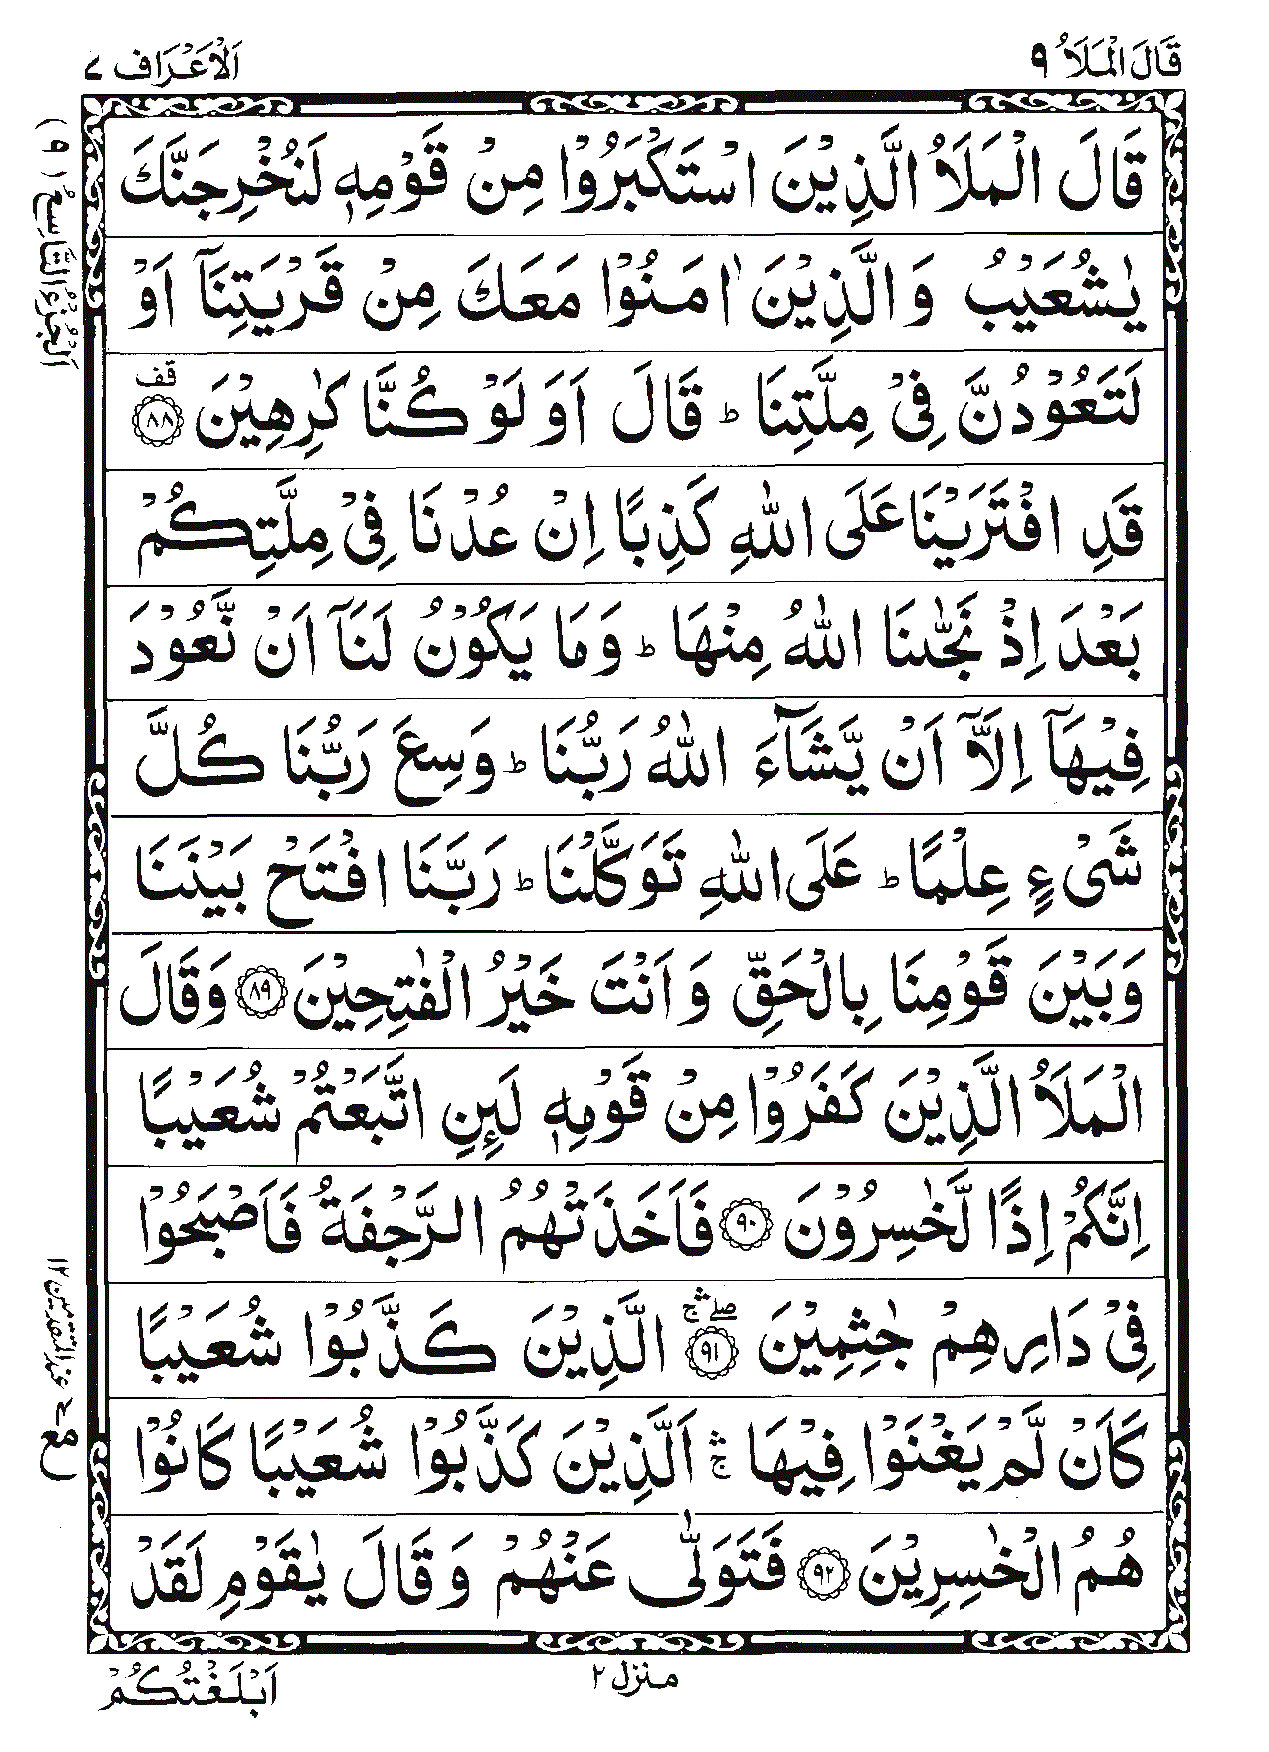 قَالَ الْمَلَاُ ٩
اَلْاَعْرَاف ٧
اَلْجُزْءُ التَّاسِعُ (٩)
قَالَ الْمَلَاُ الَّذِيْنَ اسْتَكْبَرُوْا مِنْ قَوْمِهٖ لَنُخْرِجَنَّكَ
يٰشُعَيْبُ وَالَّذِيْنَ اٰمَنُوْا مَعَكَ مِنْ قَرْيَتِنَآ اَوْ
لَتَعُوْدُنَّ فِيْ مِلَّتِنَا ؕ قَالَ اَوَلَوْ كُنَّا كٰرِهِيْنَ ﴿٨٨﴾ قف
قَدِ افْتَرَيْنَا عَلَى اللّٰهِ كَذِبًا اِنْ عُدْنَا فِيْ مِلَّتِكُمْ
بَعْدَ اِذْ نَجّٰىنَا اللّٰهُ مِنْهَا ؕ وَمَا يَكُوْنُ لَنَآ اَنْ نَّعُوْدَ
فِيْهَآ اِلَّآ اَنْ يَّشَآءَ اللّٰهُ رَبُّنَا ؕ وَسِعَ رَبُّنَا كُلَّ
شَيْءٍ عِلْمًا ؕ عَلَى اللّٰهِ تَوَكَّلْنَا ؕ رَبَّنَا افْتَحْ بَيْنَنَا
وَبَيْنَ قَوْمِنَا بِالْحَقِّ وَاَنْتَ خَيْرُ الْفٰتِحِيْنَ ﴿٨٩﴾ وَقَالَ
الْمَلَاُ الَّذِيْنَ كَفَرُوْا مِنْ قَوْمِهٖ لَىِٕنِ اتَّبَعْتُمْ شُعَيْبًا
اِنَّكُمْ اِذًا لَّخٰسِرُوْنَ ﴿٩٠﴾ فَاَخَذَتْهُمُ الرَّجْفَةُ فَاَصْبَحُوْا
فِيْ دَارِهِمْ جٰثِمِيْنَ ﴿٩١﴾ الَّذِيْنَ كَذَّبُوْا شُعَيْبًا
كَاَنْ لَّمْ يَغْنَوْا فِيْهَا ۛۚ اَلَّذِيْنَ كَذَّبُوْا شُعَيْبًا كَانُوْا
هُمُ الْخٰسِرِيْنَ ﴿٩٢﴾ فَتَوَلّٰى عَنْهُمْ وَقَالَ يٰقَوْمِ لَقَدْ
منزل ٢
اَبْلَغْتُكُمْ